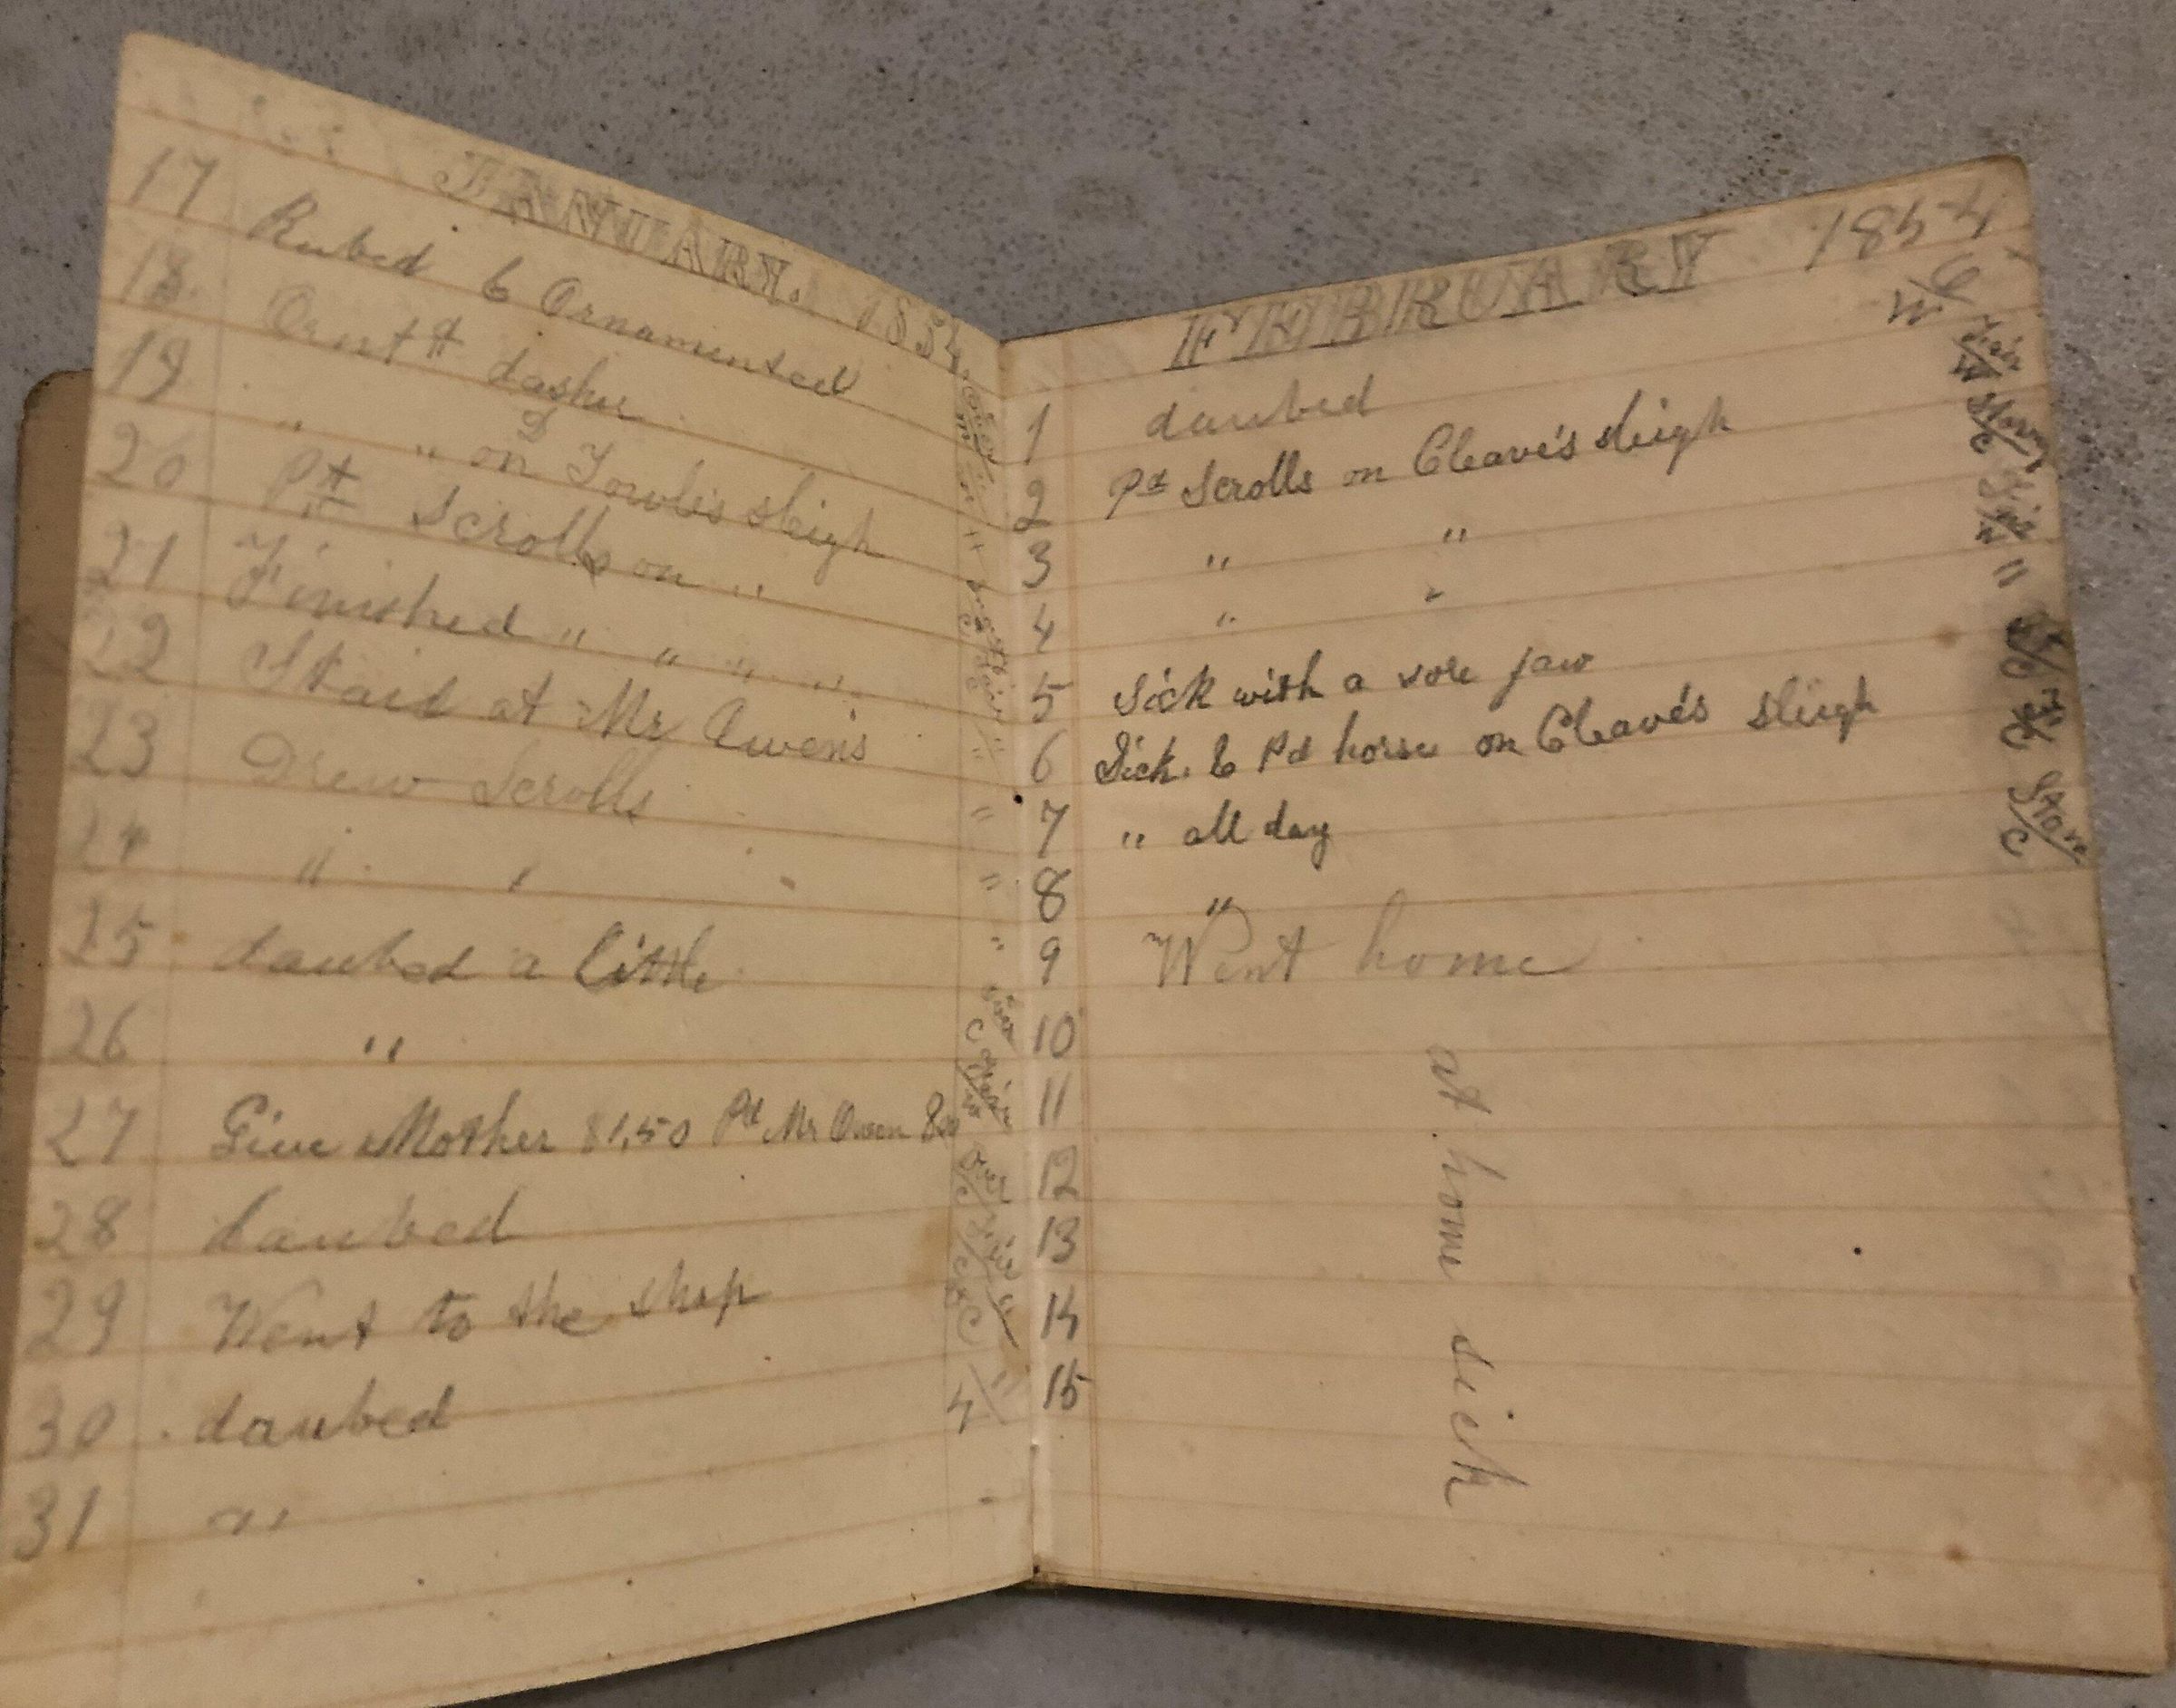 JANUARY. 1854.
17 Rubed & Ornamented
18 Ornt# dasher
19 " " on D Fowle's sleigh
20 Pt Scrolls on "
21 Finished " " " "
22 Staid at Mr Owen's
23 Drew Scrolls
24 " "
25 daubed a little
26 "
27 Give Mother $1,50 Pd Mr Owen
28 daubed
29 Went to the shop
30 daubed
31 "
FEBRUARY 1854
1 daubed
2 Pd Scrolls on Cleave's sleigh
3 " "
4 " "
5 Sick with a sore jaw
6 Sick. & Pd horse on Cleave's sleigh
7 " all day
8 "
9 Went home
10
11
12
13
14
15
at home sick